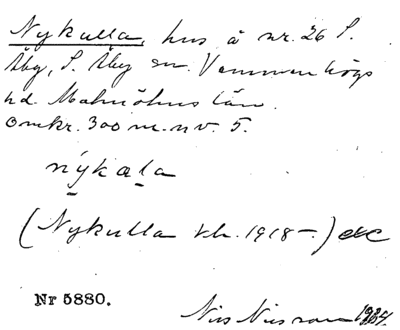 Nykulla, hus å nr. 26 S.
Åby, S. Åby sn. Vemmenhögs
hd. Malmöhus län.
Omkr. 300 m. n v. 5.
nýkala
(Nykulla kh. 1918–)
Nr 5880.
Nils Nilsson 1934.